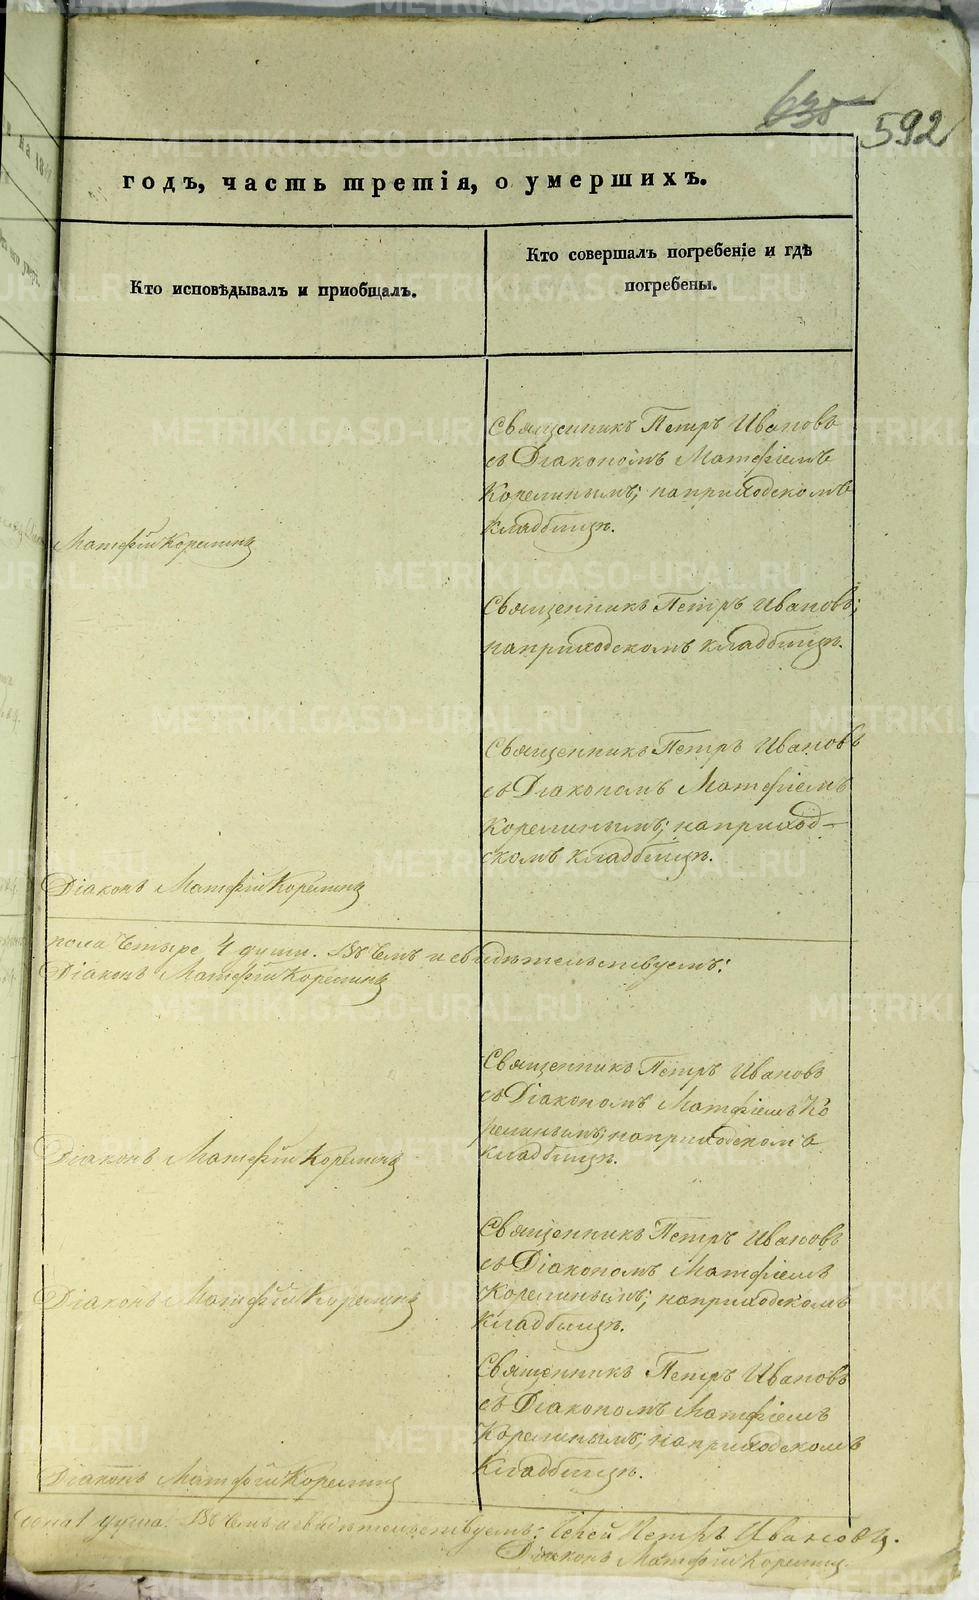 635
592
годъ, часть третія, о умершихъ.
Кто исповѣдывалъ и приобщалъ.
Кто совершалъ погребеніе и гдѣ
погребены.
Священникъ Петръ Ивановъ
съ Діакономъ Матфіемъ
Корелинымъ; на приходскомъ
кладбищѣ.
Матфій Корелинъ
Священникъ Петръ Ивановъ;
на приходскомъ кладбищѣ.
Священникъ Петръ Ивановъ
съ Діакономъ Матфіемъ
Корелинымъ; на приход-
скомъ кладбищѣ.
Діаконъ Матфій Корелинъ
пола четыре 4 души. Въ чемъ и свидѣтельствуемъ:
Діаконъ Матфій Корелинъ
Священникъ Петръ Ивановъ
съ Діакономъ Матфіемъ Ко
релинымъ; на приходскомъ
кладбищѣ.
Діаконъ Матфій Корелинъ
Священникъ Петръ Ивановъ
съ Діакономъ Матфіемъ
Корелинымъ; на приходскомъ
кладбищѣ.
Діаконъ Матфій Корелинъ
Священникъ Петръ Ивановъ
съ Діакономъ Матфіемъ
Корелинымъ; на приходскомъ
кладбищѣ.
Діаконъ Матфій Корелинъ
1 душа. Въ чемъ и свидѣтельствуемъ: Іерей Петръ Ивановъ.
Діаконъ Матфій Корелинъ.
METRIKI.GASO-URAL.RU